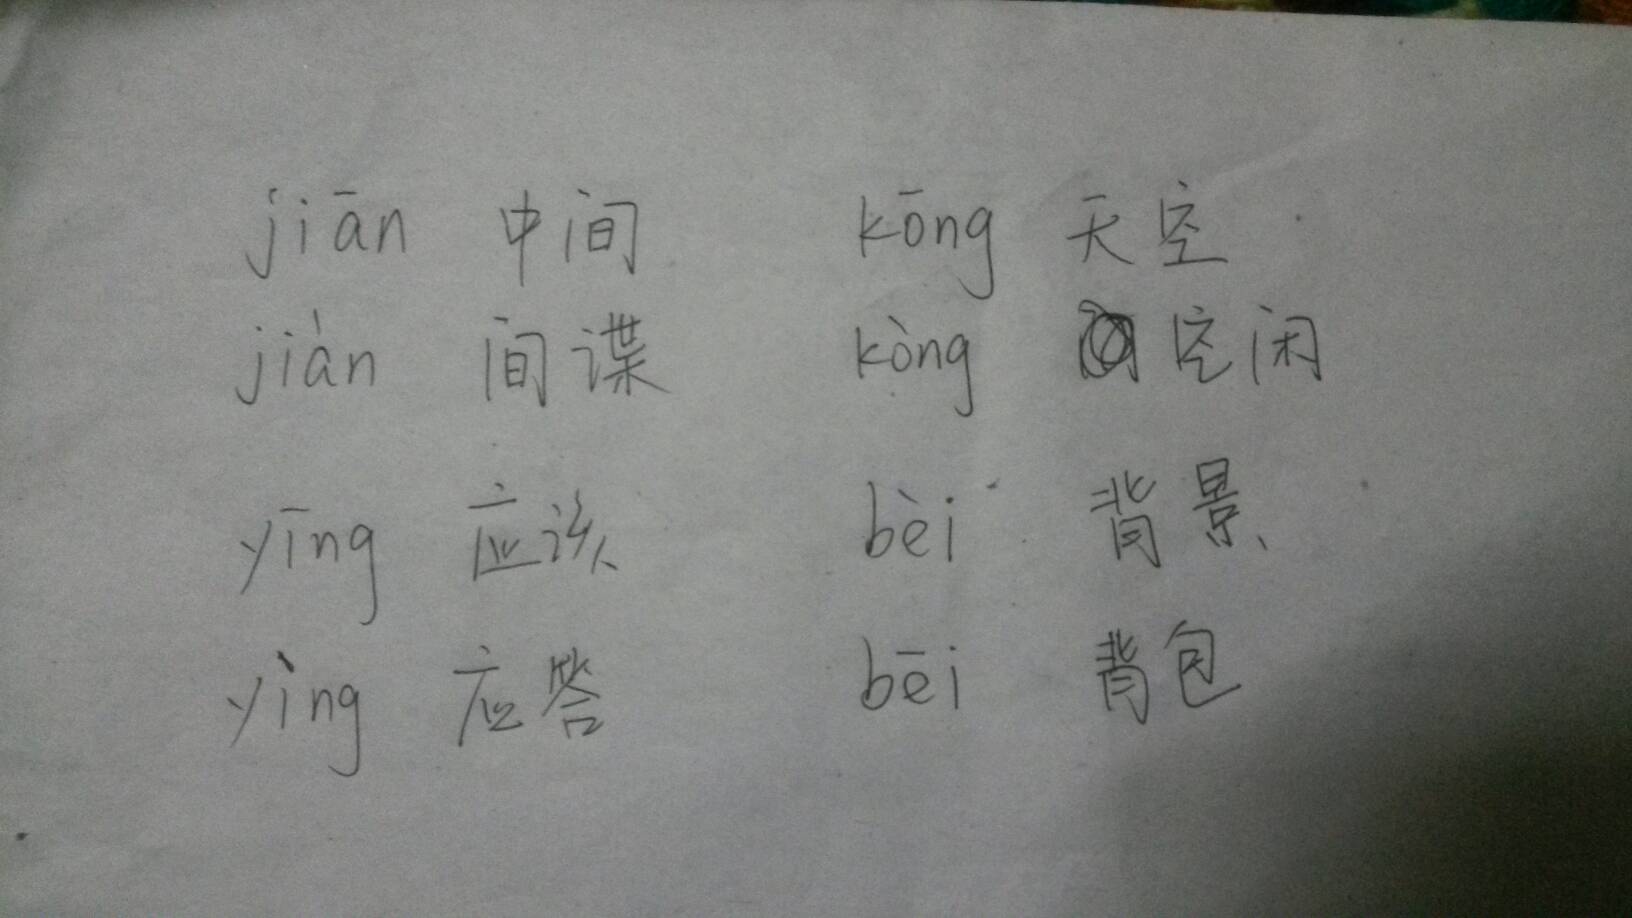 jiān 中间 kōng 天空
jiàn 间谍 kòng 空闲
yīng 应该 bèi 背景
yìng 应答 bēi 背包